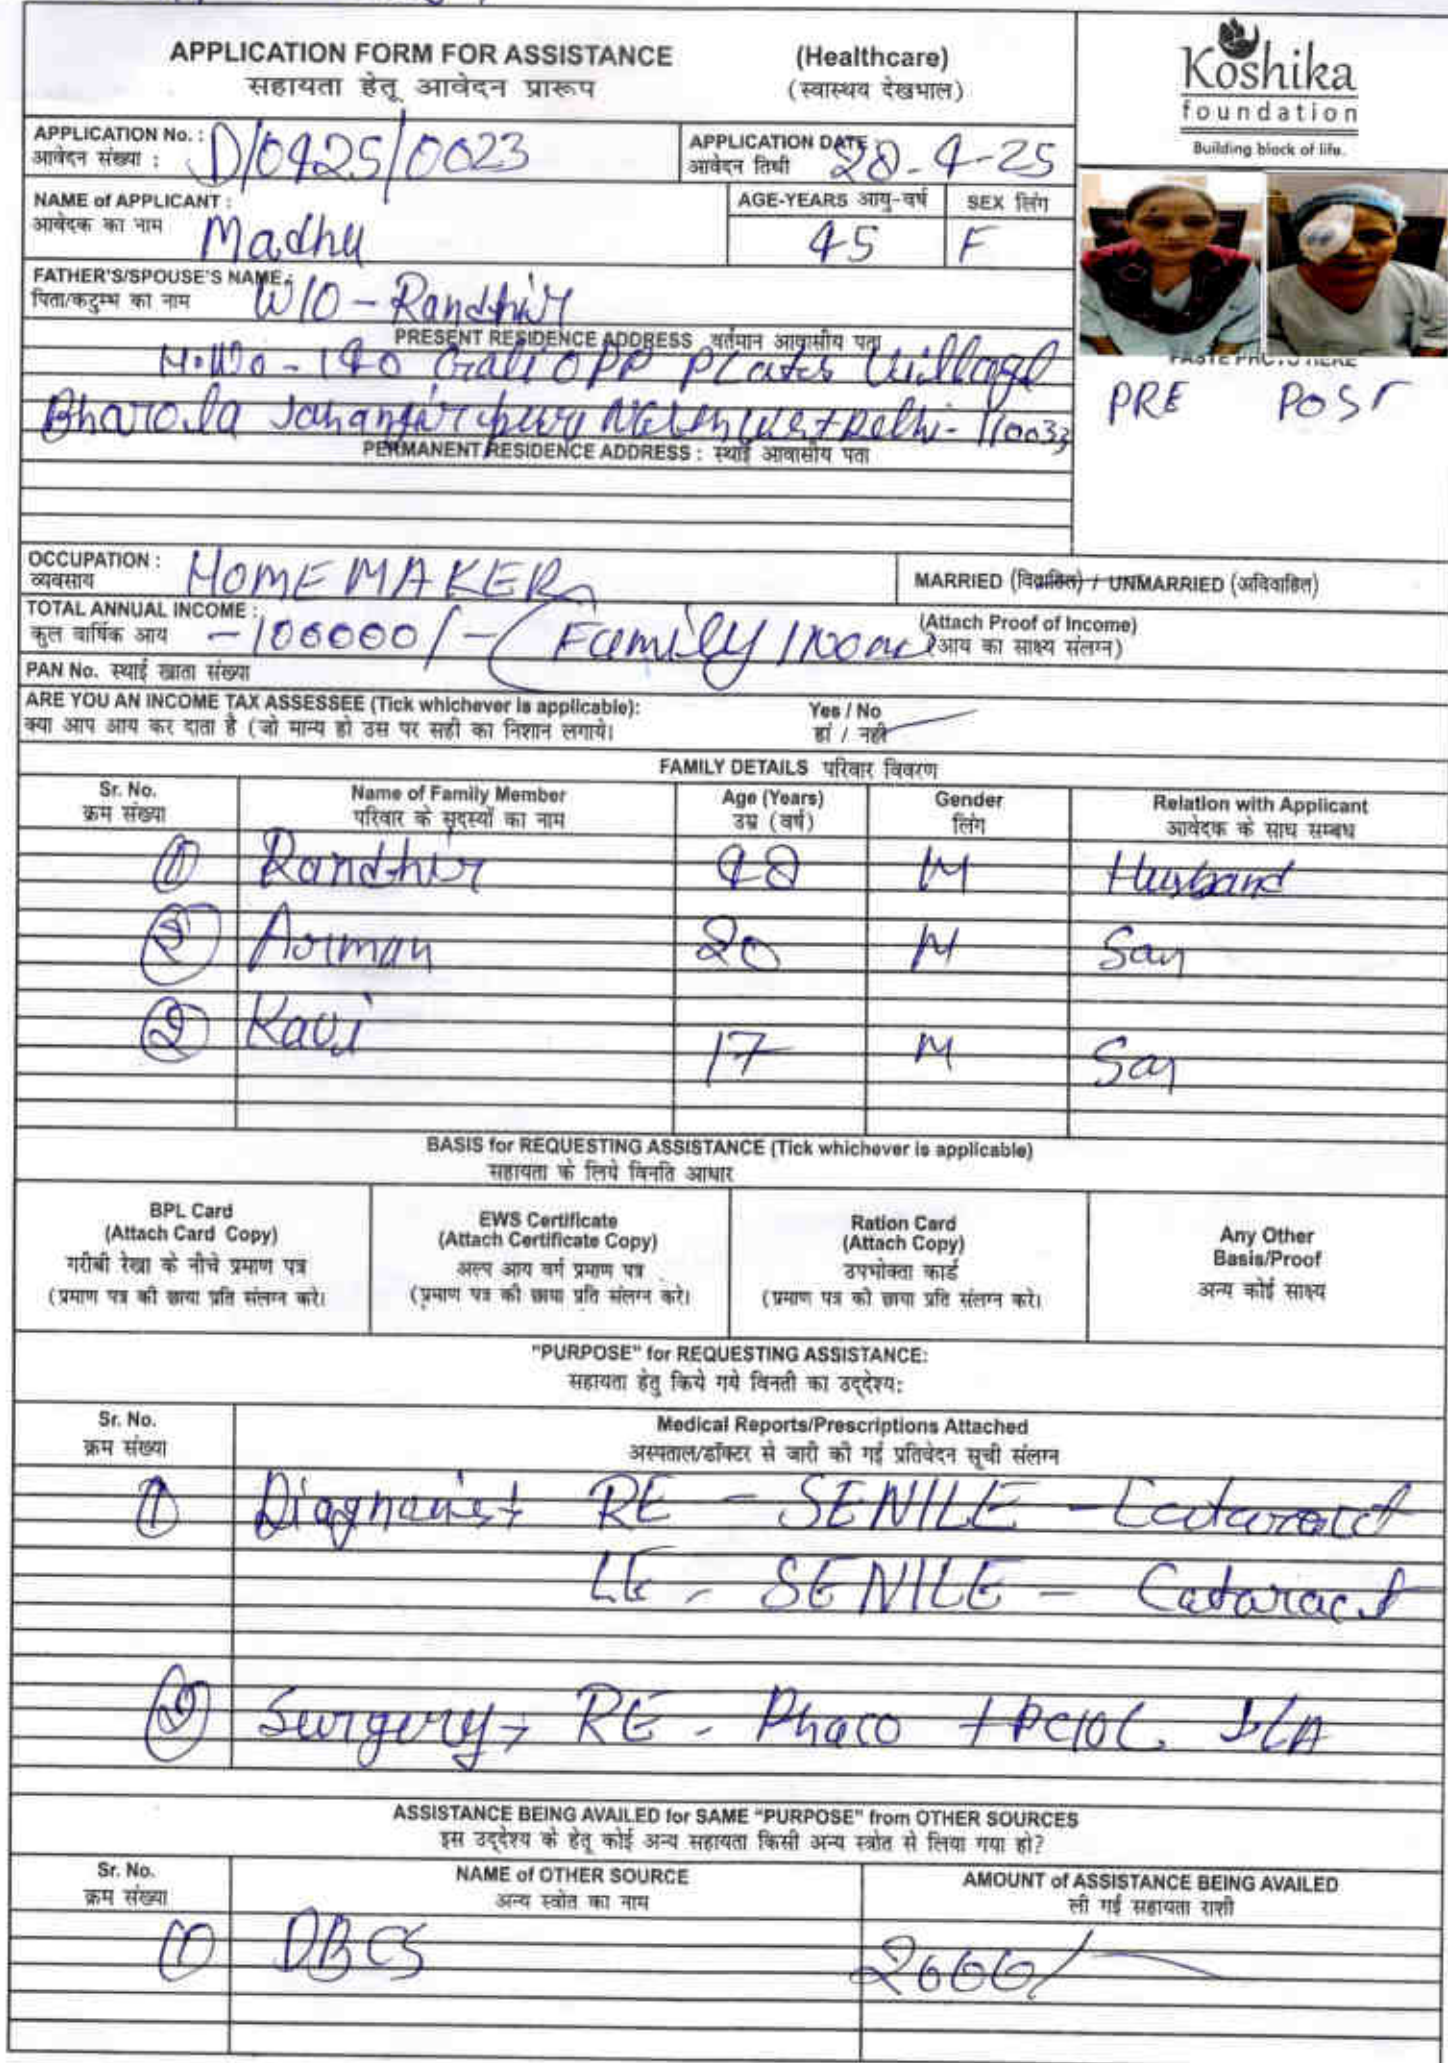 APPLICATION FORM FOR ASSISTANCE (Healthcare)
सहायता हेतू आवेदन प्रारूप (स्वास्थय देखभाल)
Koshika
foundation
Building block of life.
APPLICATION No. : D/0425/0023
आवेदन संख्या :
APPLICATION DATE : 28-4-25
आवेदन तिथी
NAME of APPLICANT : Madhu
आवेदक का नाम
AGE-YEARS आयु-वर्ष 45
SEX लिंग F
FATHER'S/SPOUSE'S NAME : W/O - Randhir
पिता/कटुम्ब का नाम
PRESENT RESIDENCE ADDRESS वर्तमान आवासीय पता
H.No - 140 Gali OPP Village
Bharola Jahangirpuri North West Delhi - 110033
PASTE PHOTO HERE
PRE POST
PERMANENT RESIDENCE ADDRESS : स्थाई आवासीय पता
OCCUPATION : HOMEMAKER
व्यवसाय
MARRIED (विवाहित) / UNMARRIED (अविवाहित)
TOTAL ANNUAL INCOME : - 100000/- (Family
कुल वार्षिक आय
(Attach Proof of Income)
(आय का साक्ष्य संलग्न)
PAN No. स्थाई खाता संख्या
ARE YOU AN INCOME TAX ASSESSEE (Tick whichever is applicable): Yes / No
क्या आप आय कर दाता है (जो मान्य हो उस पर सही का निशान लगाये। हां / नही
FAMILY DETAILS परिवार विवरण
Sr. No. Name of Family Member Age (Years) Gender Relation with Applicant
क्रम संख्या परिवार के सदस्यों का नाम उम्र (वर्ष) लिंग आवेदक के साथ सम्बंध
1 Randhir 48 M Husband
Arman 20 M Son
Kavi 17 M Son
BASIS for REQUESTING ASSISTANCE (Tick whichever is applicable)
सहायता के लिये विनति आधार
BPL Card
(Attach Card Copy)
गरीबी रेखा के नीचे प्रमाण पत्र
(प्रमाण पत्र की छाया प्रति संलग्न करे।
EWS Certificate
(Attach Certificate Copy)
अल्प आय वर्ग प्रमाण पत्र
(प्रमाण पत्र की छाया प्रति संलग्न करे।
Ration Card
(Attach Copy)
उपभोक्ता कार्ड
(प्रमाण पत्र की छाया प्रति संलग्न करे।
Any Other
Basis/Proof
अन्य कोई साक्ष्य
"PURPOSE" for REQUESTING ASSISTANCE:
सहायता हेतु किये गये विनती का उद्देश्य:
Sr. No. Medical Reports/Prescriptions Attached
क्रम संख्या अस्पताल/डॉक्टर से जारी की गई प्रतिवेदन सूची संलग्न
1 RE - SENILE - Cataract
LE - SENILE - Cataract
2 Surgery RE - Phaco + PCIOL
ASSISTANCE BEING AVAILED for SAME "PURPOSE" from OTHER SOURCES
इस उद्देश्य के हेतू कोई अन्य सहायता किसी अन्य स्त्रोत से लिया गया हो?
Sr. No. NAME of OTHER SOURCE AMOUNT of ASSISTANCE BEING AVAILED
क्रम संख्या अन्य स्त्रोत का नाम ली गई सहायता राशी
1 DBCS 2000/-